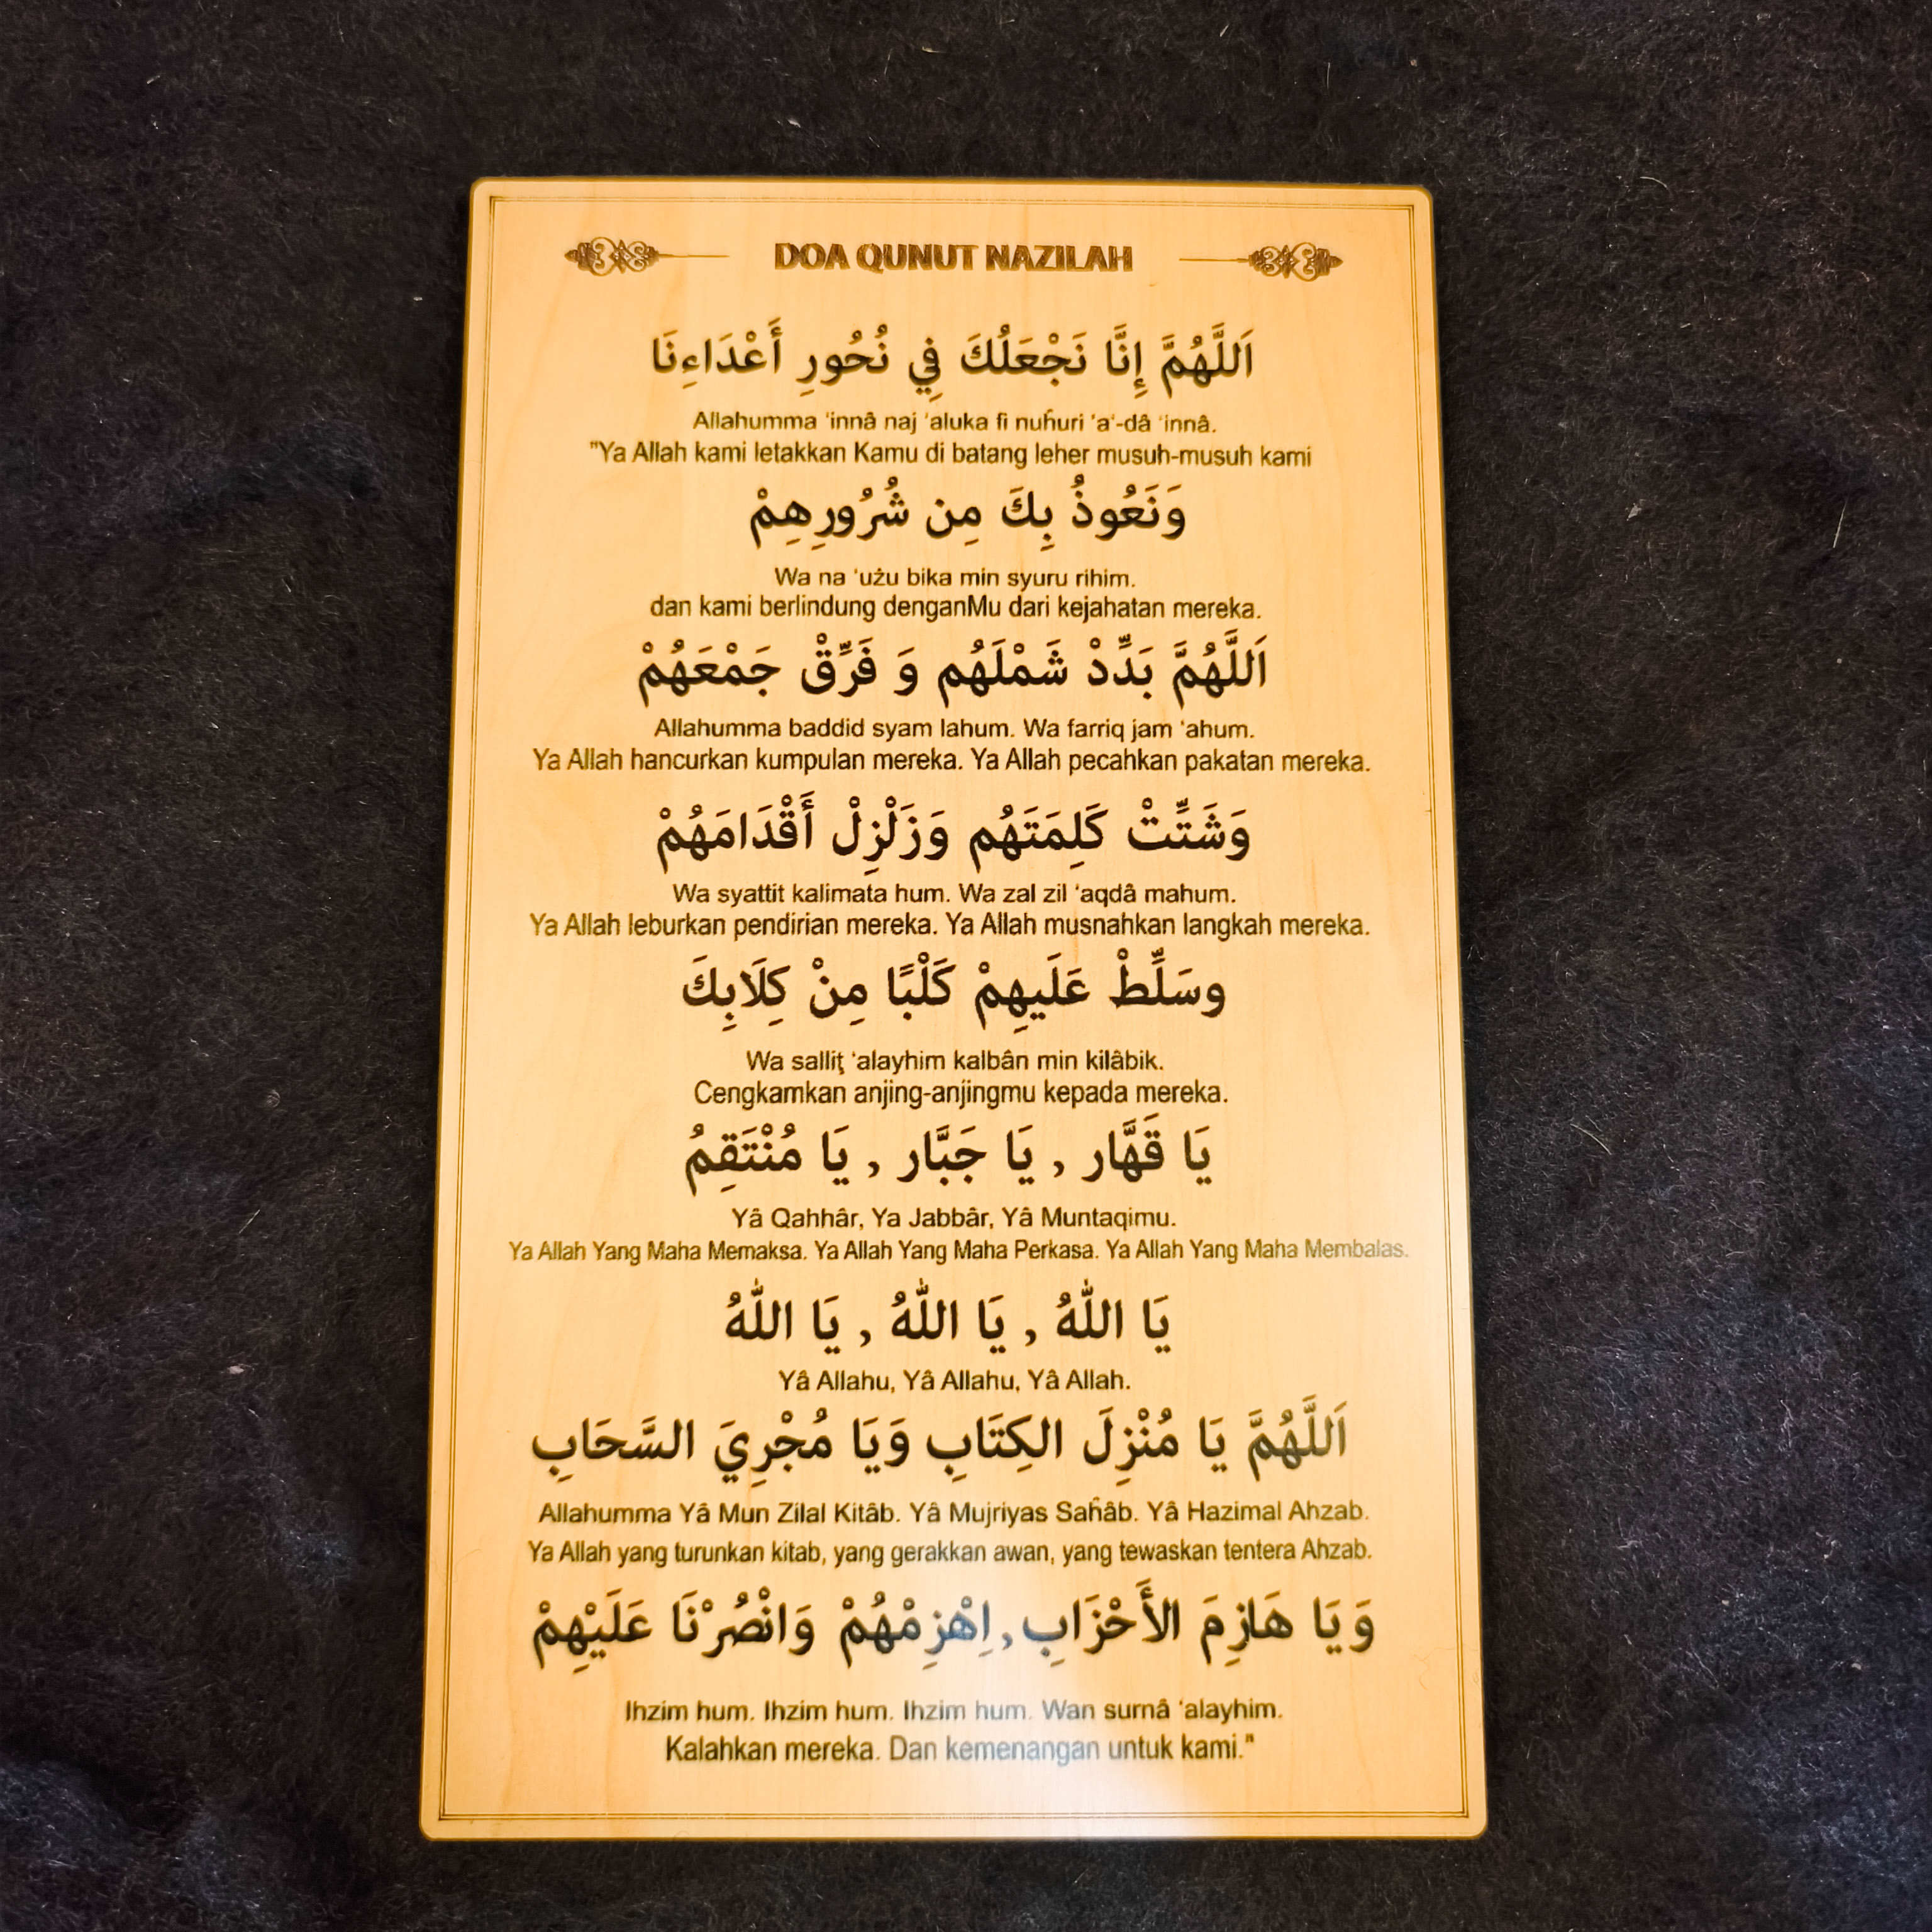 DOA QUNUT NAZILAH
اَللَّهُمَّ إِنَّا نَجْعَلُكَ فِي نُحُورِ أَعْدَاءِنَا
Allahumma ‘innâ naj ‘aluka fi nuĥuri ‘a‘-dâ ‘innâ.
"Ya Allah kami letakkan Kamu di batang leher musuh-musuh kami
وَنَعُوذُ بِكَ مِن شُرُورِهِمْ
Wa na ‘użu bika min syuru rihim.
dan kami berlindung denganMu dari kejahatan mereka.
اَللَّهُمَّ بَدِّدْ شَمْلَهُم وَ فَرِّقْ جَمْعَهُمْ
Allahumma baddid syam lahum. Wa farriq jam ‘ahum.
Ya Allah hancurkan kumpulan mereka. Ya Allah pecahkan pakatan mereka.
وَشَتِّتْ كَلِمَتَهُم وَزَلْزِلْ أَقْدَامَهُمْ
Wa syattit kalimata hum. Wa zal zil ‘aqdâ mahum.
Ya Allah leburkan pendirian mereka. Ya Allah musnahkan langkah mereka.
وسَلِّطْ عَلَيهِمْ كَلْبًا مِنْ كِلَابِكَ
Wa salliţ ‘alayhim kalbân min kilâbik.
Cengkamkan anjing-anjingmu kepada mereka.
يَا قَهَّار , يَا جَبَّار , يَا مُنْتَقِمُ
Yâ Qahhâr, Ya Jabbâr, Yâ Muntaqimu.
Ya Allah Yang Maha Memaksa. Ya Allah Yang Maha Perkasa. Ya Allah Yang Maha Membalas.
يَا اللهُ , يَا اللهُ , يَا اللهُ
Yâ Allahu, Yâ Allahu, Yâ Allah.
اَللَّهُمَّ يَا مُنْزِلَ الكِتَابِ وَيَا مُجْرِيَ السَّحَابِ
Allahumma Yâ Mun Zilal Kitâb. Yâ Mujriyas Saĥâb. Yâ Hazimal Ahzab.
Ya Allah yang turunkan kitab, yang gerakkan awan, yang tewaskan tentera Ahzab.
وَيَا هَازِمَ الأَحْزَابِ , اِهْزِمْهُمْ وَانْصُرْنَا عَلَيْهِمْ
Ihzim hum. Ihzim hum. Ihzim hum. Wan surnâ ‘alayhim.
Kalahkan mereka. Dan kemenangan untuk kami."